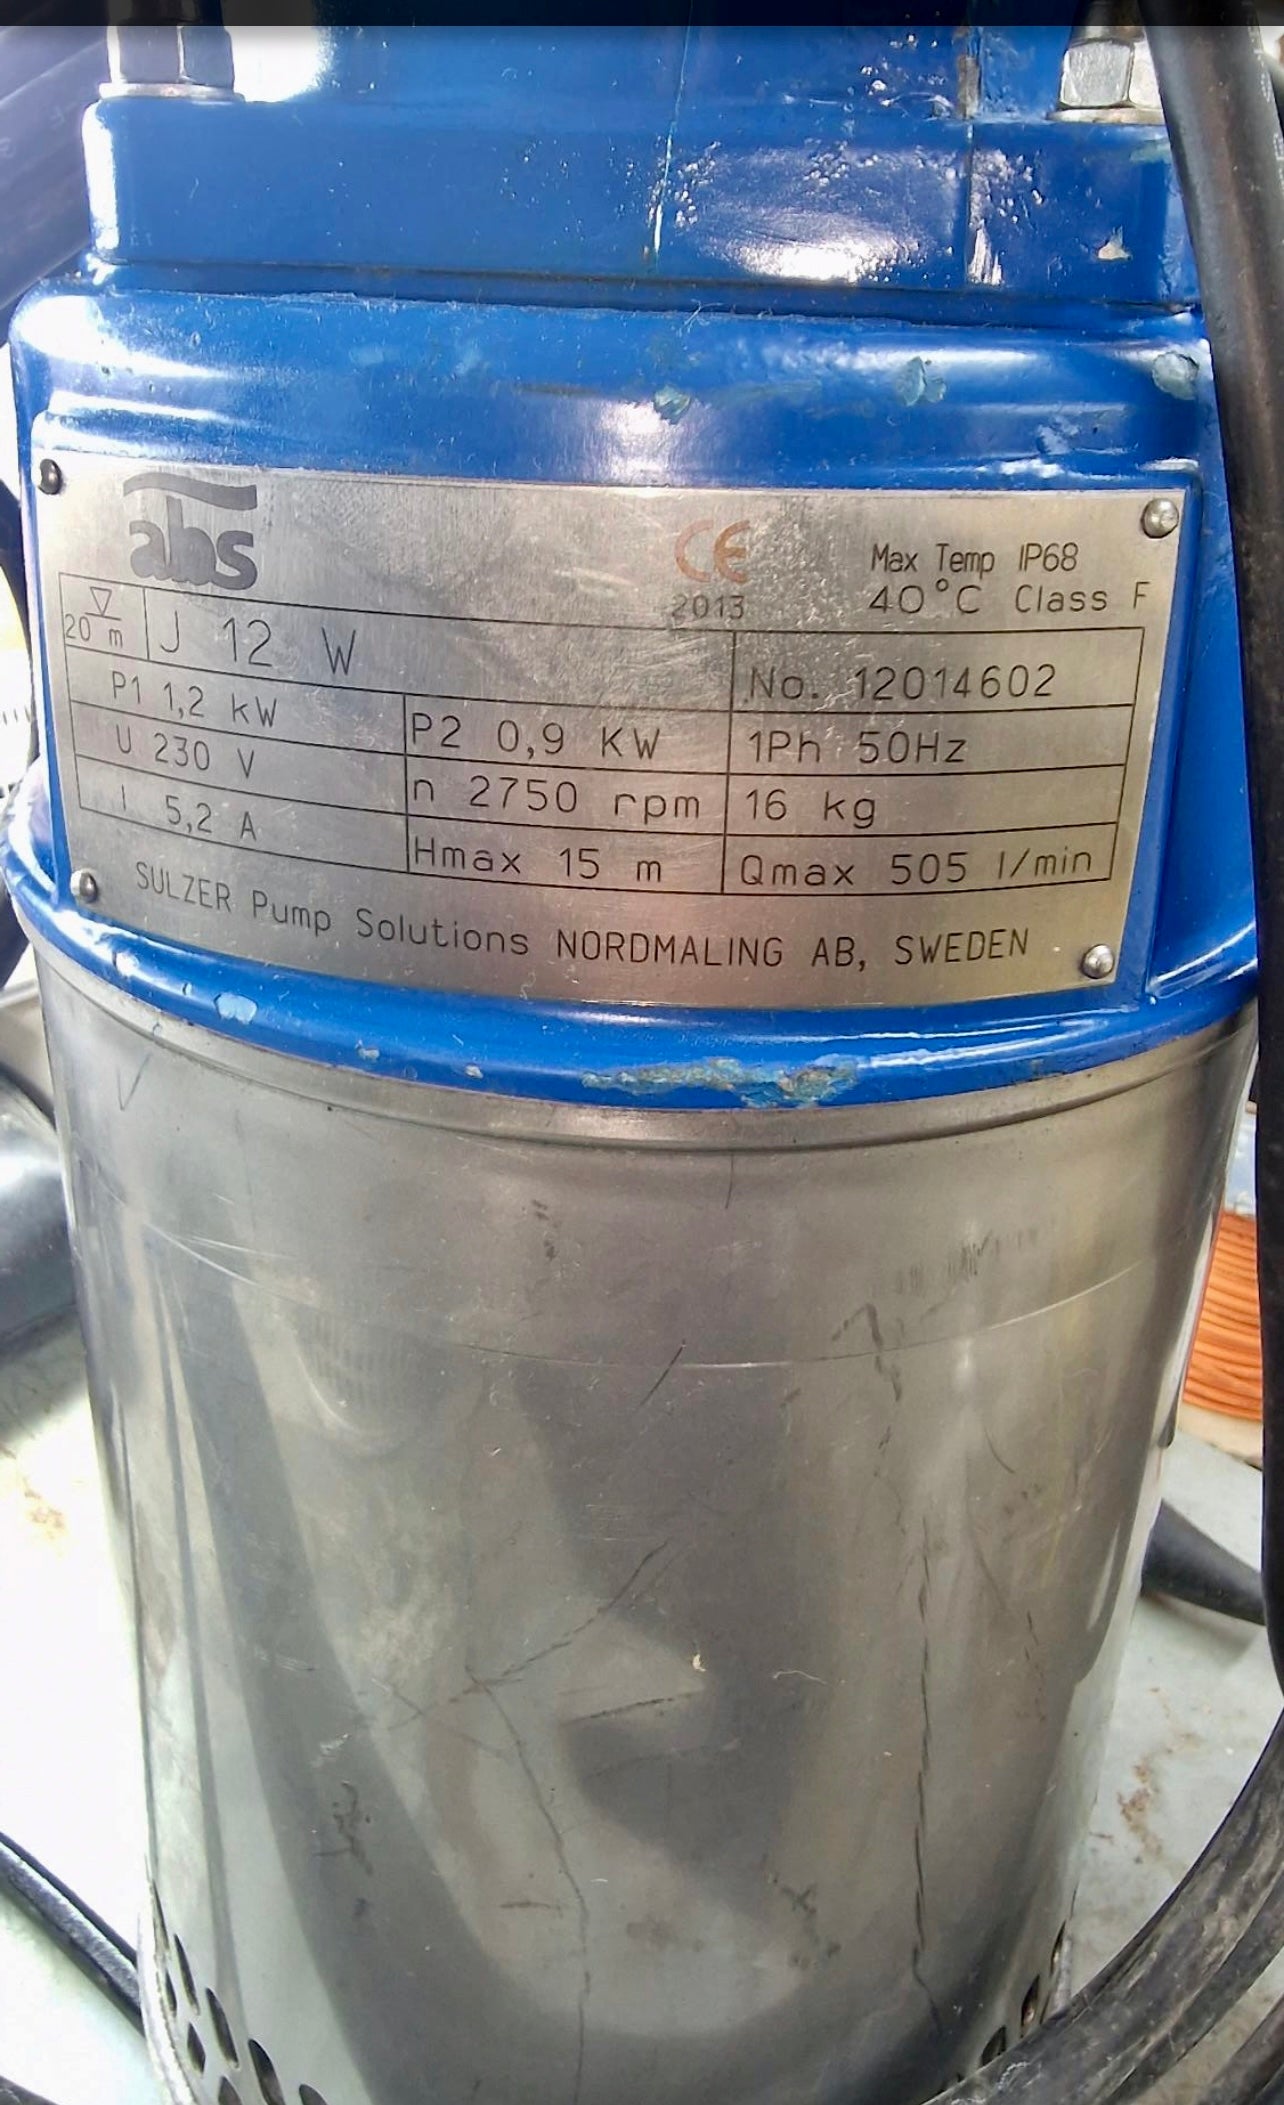 abs
CE
2013
Max Temp IP68
40°C Class F
20 m
J 12 W
No. 12014602
P1 1,2 kW
P2 0,9 KW
1Ph 50Hz
U 230 V
n 2750 rpm
16 kg
I 5,2 A
Hmax 15 m
Qmax 505 l/min
SULZER Pump Solutions NORDMALING AB, SWEDEN